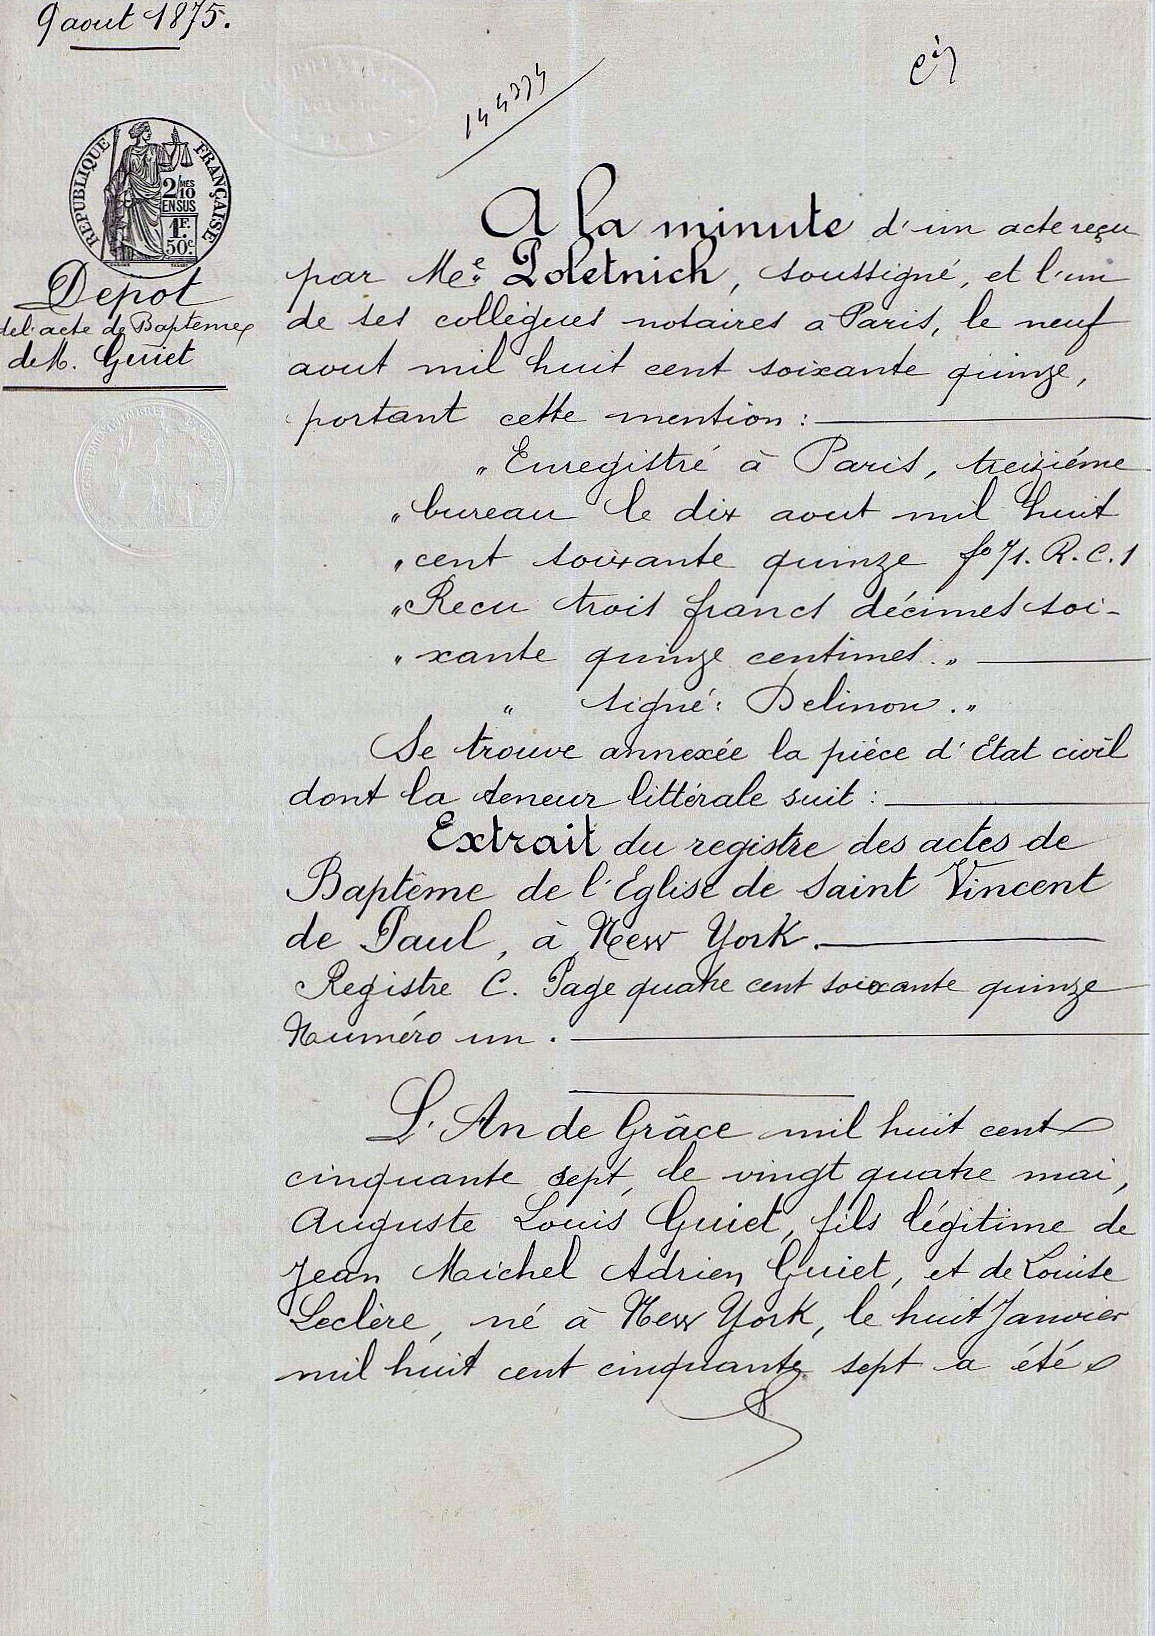 9 aout 1875.
RÉPUBLIQUE FRANÇAISE
2/10 MES
EN SUS
1F.
50c
Depot
de l'acte de Bapteme
de M. Guiet
A la minute d'un acte reçu
par Me. Poletnich, soussigné, et l'un
de ses collègues notaires a Paris, le neuf
aout mil huit cent soixante quinze,
portant cette mention :
" Enregistré à Paris, treizième
" bureau le dix aout mil huit
" cent soixante quinze fo 71. R. C. 1
" Recu trois francs décimes soi-
" xante quinze centimes. "
" signé : Delinon. "
Se trouve annexée la pièce d'Etat civil
dont la teneur littérale suit :
Extrait du registre des actes de
Baptême de l'Eglise de Saint Vincent
de Paul, à New York.
Registre C. Page quatre cent soixante quinze
Numéro un.
L'An de Grâce mil huit cent
cinquante sept, le vingt quatre mai,
Auguste Louis Guiet, fils légitime de
Jean Michel Adrien Guiet, et de Louise
Leclère, né à New York, le huit Janvier
mil huit cent cinquante sept a été